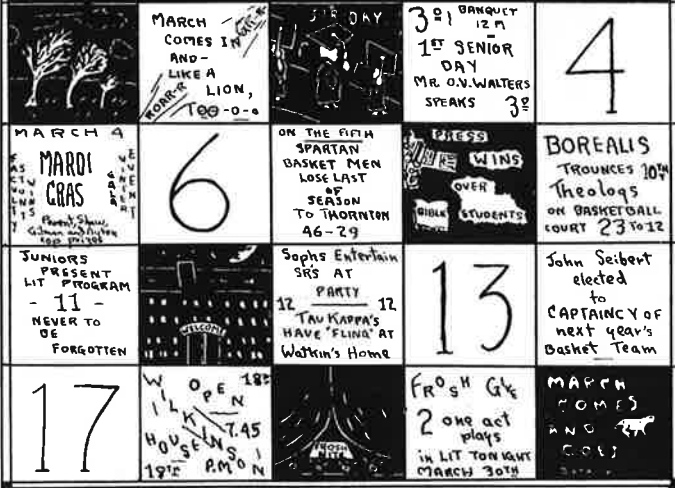 MARCH
COMES IN
AND-
LIKE A
LION,
ROAR-R
TOO-O-O
SR DAY
3º BANQUET
12 M
1ST SENIOR
DAY
MR O.V. WALTERS
SPEAKS 3º
4
MARCH 4
FACULTY
ACTS
WINS
MARDI
GRAS
GALA
WINTER
EVENT
Prevent, Shaw,
Gilman and
top prizes
6
ON THE FIFTH
SPARTAN
BASKET MEN
LOSE LAST
OF
SEASON
TO THORNTON
46-29
PRESS
WINS
OVER
BIBLE STUDENTS
BOREALIS
TROUNCES 10TH
Theologs
ON BASKETBALL
COURT 23 TO 12
JUNIORS
PRESENT
LIT PROGRAM
- 11 -
NEVER TO
BE
FORGOTTEN
WELCOME
Sophs Entertain
SRS AT
PARTY
12 12
TAU KAPPA'S
HAVE "FLING" AT
Watkin's Home
13
John Seibert
elected
to
CAPTAINCY OF
next year's
Basket Team
17
WILKINSON
OPEN 18TH
HOUSE IN
7.45
P.M.
18TH
FROSH
NITE
FROSH GIVE
2 one act
plays
in LIT TONIGHT
MARCH 30TH
MARCH
COMES
AND
GOES